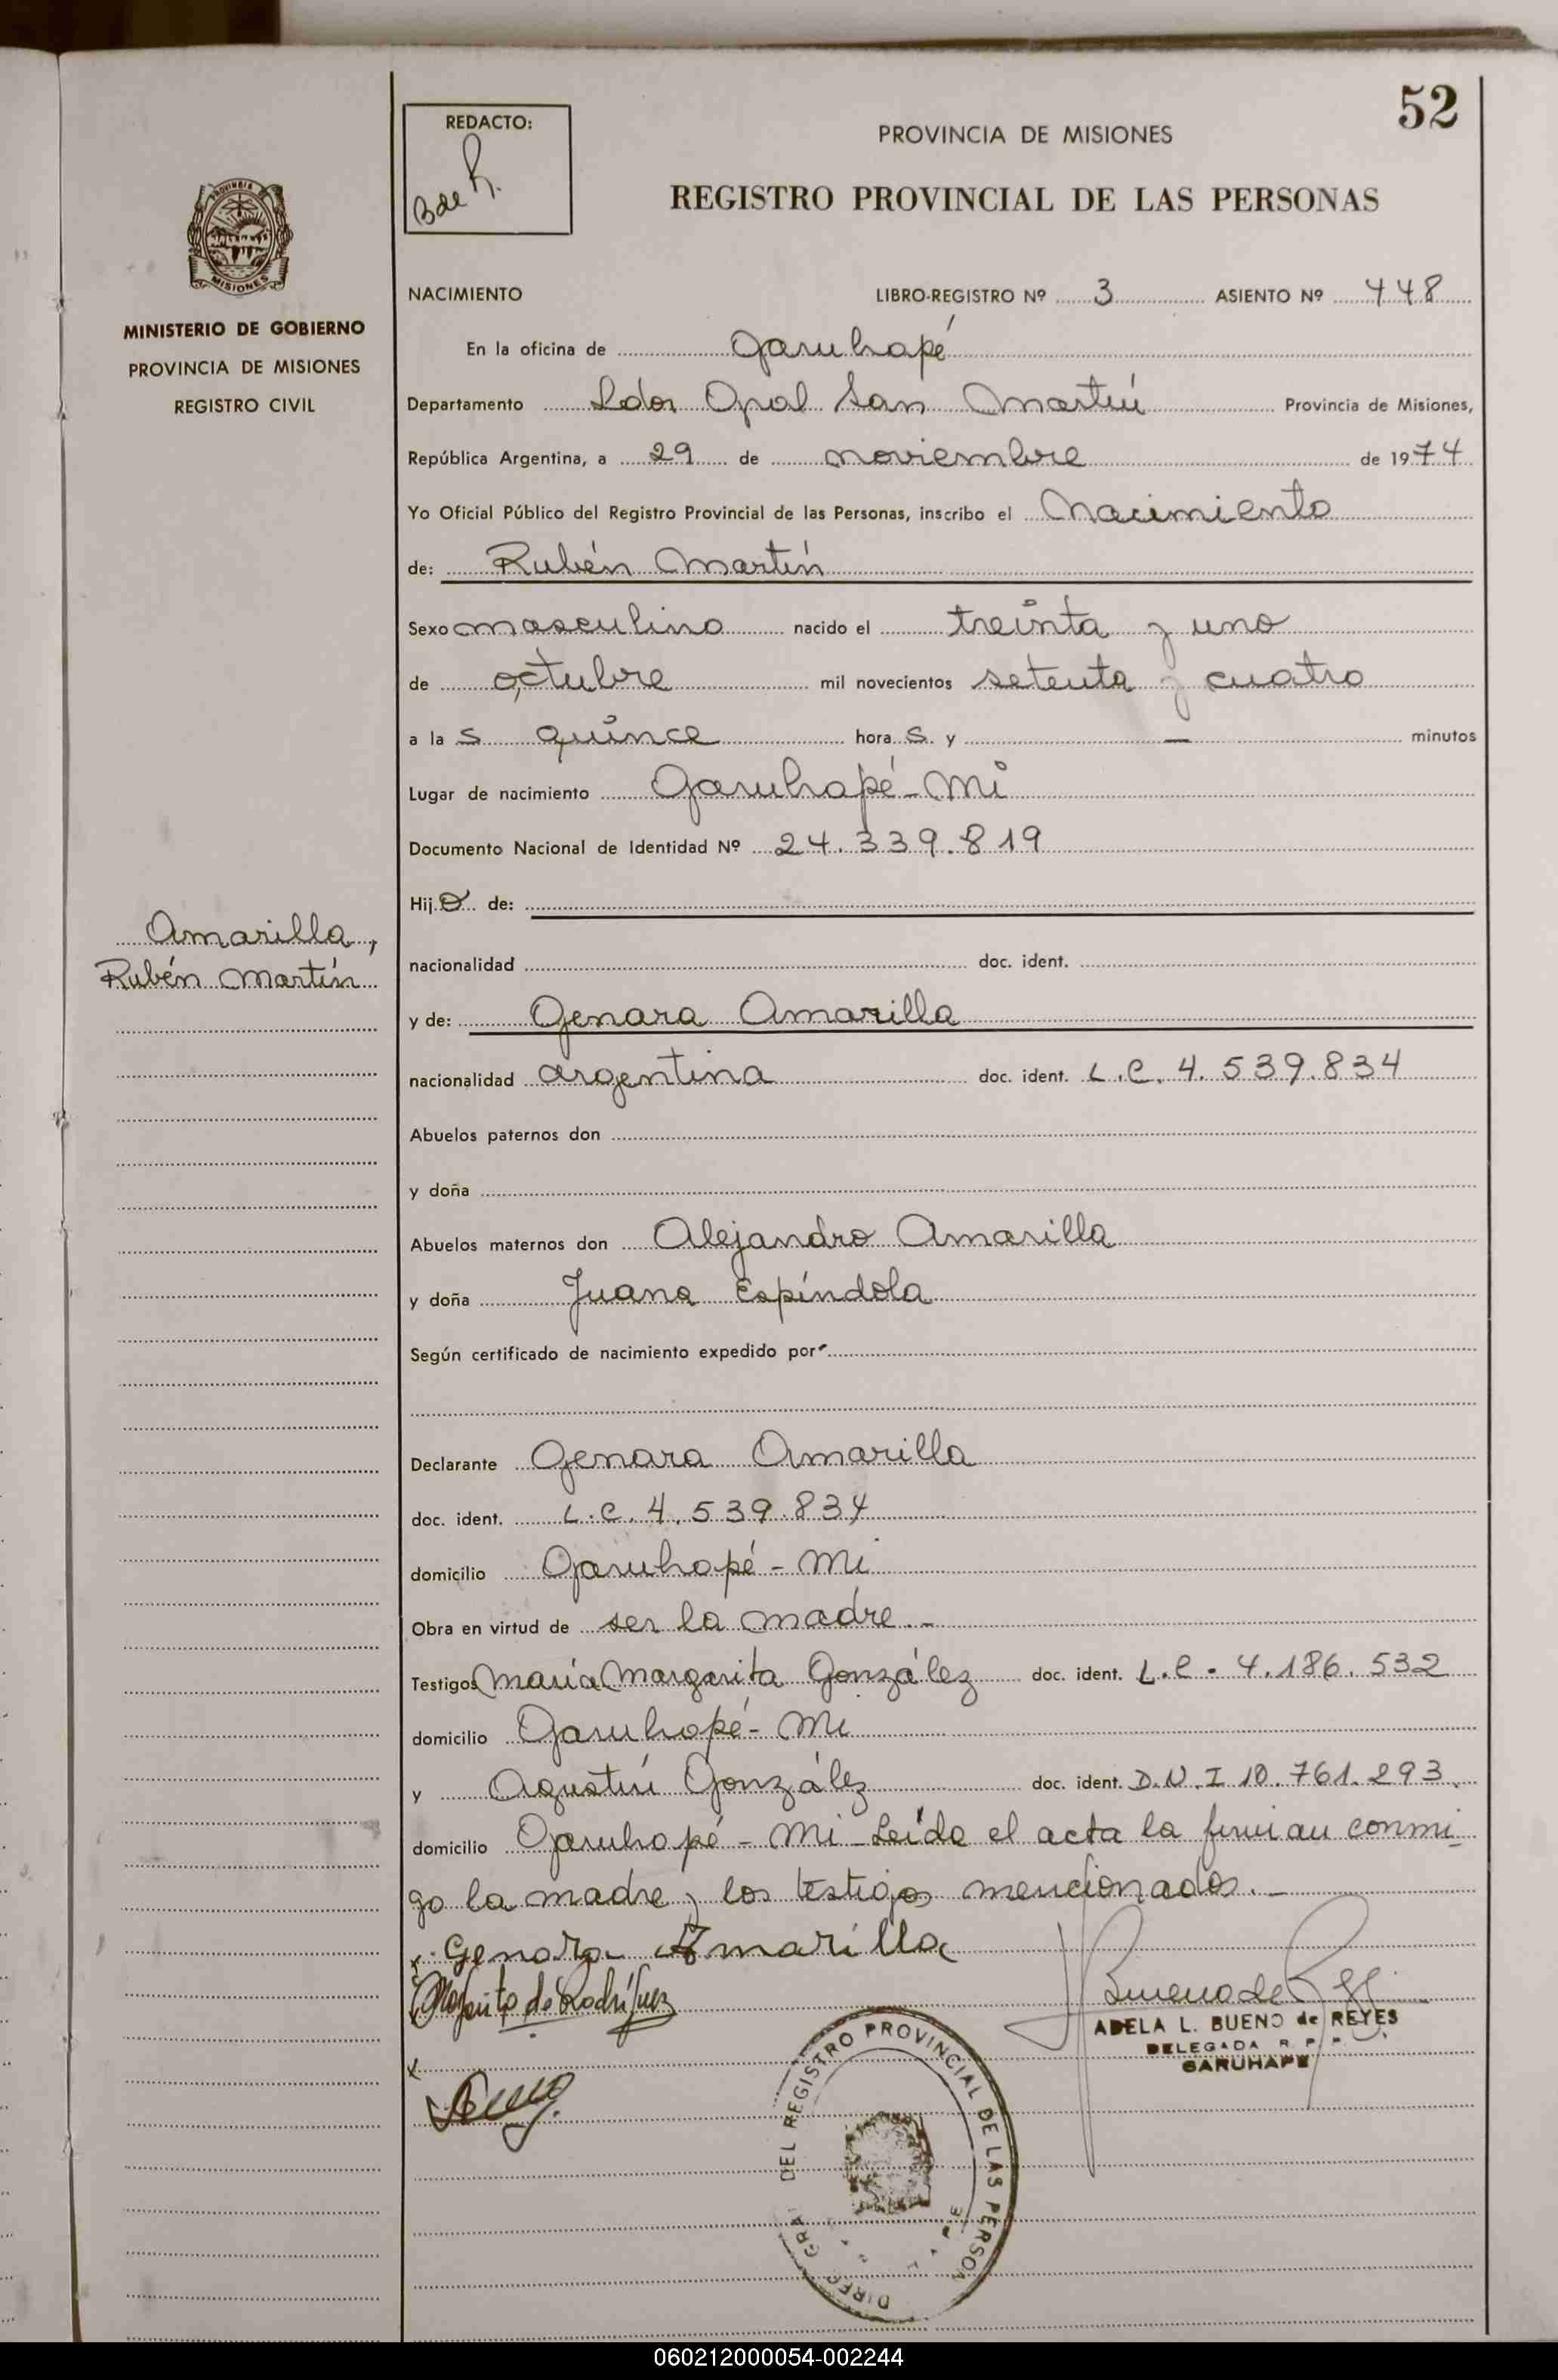 52
REDACTO:
B de R.
PROVINCIA DE MISIONES
REGISTRO PROVINCIAL DE LAS PERSONAS
PROVINCIA
MISIONES
MINISTERIO DE GOBIERNO
PROVINCIA DE MISIONES
REGISTRO CIVIL
Amarilla,
Rubén Martín
NACIMIENTO LIBRO-REGISTRO Nº 3 ASIENTO Nº 448
En la oficina de Garuhapé
Departamento Ldor Gral San Martín Provincia de Misiones,
República Argentina, a 29 de noviembre de 1974
Yo Oficial Público del Registro Provincial de las Personas, inscribo el Nacimiento
de: Rubén Martín
Sexo masculino nacido el treinta y uno
de octubre mil novecientos setenta y cuatro
a la s quince hora s. y — minutos
Lugar de nacimiento Garuhapé - Mi
Documento Nacional de Identidad Nº 24.339.819
Hij o de:
nacionalidad doc. ident.
y de: Genara Amarilla
nacionalidad argentina doc. ident. L.C. 4.539.834
Abuelos paternos don
y doña
Abuelos maternos don Alejandro Amarilla
y doña Juana Espíndola
Según certificado de nacimiento expedido por
Declarante Genara Amarilla
doc. ident. L.C. 4.539.834
domicilio Garuhapé - Mi
Obra en virtud de ser la madre.-
Testigos María Margarita González doc. ident. L.C. 4.186.532
domicilio Garuhapé - Mi
y Agustín González doc. ident. D.N.I 10.761.293
domicilio Garuhapé - Mi - Leída el acta la firman conmi-
go la madre y los testigos mencionados.-
x Genara Amarilla
Margarita de Rodríguez
Bueno de R
ADELA L. BUENO de REYES
DELEGADA R. P. P.
GARUHAPE
x
DIREC. GRAL DEL REGISTRO PROVINCIAL DE LAS PERSON
060212000054-002244